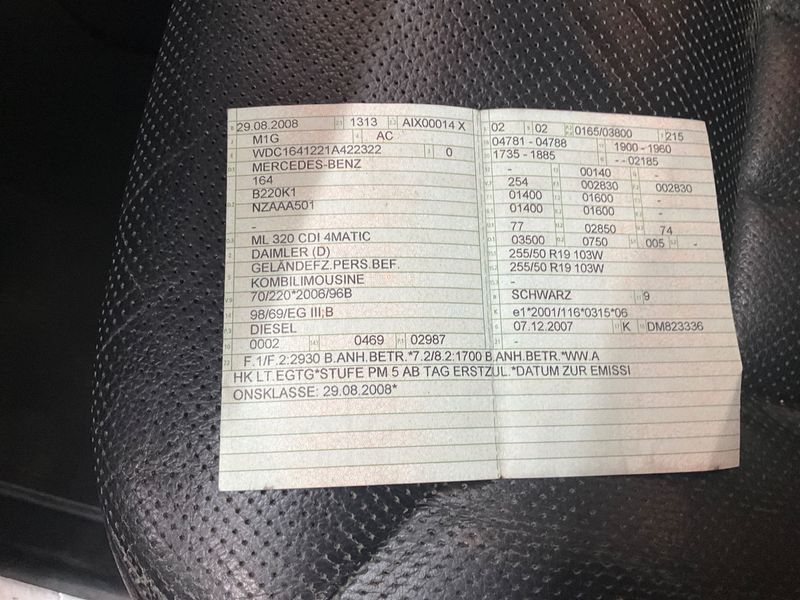 29.08.2008 1313 AIX00014 X
M1G AC
WDC1641221A422322 0
MERCEDES-BENZ
164
B220K1
NZAAA501
-
ML 320 CDI 4MATIC
DAIMLER (D)
GELÄNDEFZ.PERS.BEF.
KOMBILIMOUSINE
70/220*2006/96B
98/69/EG III;B
DIESEL
0002 0469 02987
02 02 0165/03800 215
04781 - 04788 1900 - 1960
1735 - 1885 - - 02185
- 00140 -
254 002830 002830
01400 01600 -
01400 01600 -
77 02850 74
03500 0750 005 -
255/50 R19 103W
255/50 R19 103W
-
SCHWARZ 9
e1*2001/116*0315*06
07.12.2007 K DM823336
-
F.1/F.2:2930 B.ANH.BETR.*7.2/8.2:1700 B.ANH.BETR.*WW.A
HK LT.EGTG*STUFE PM 5 AB TAG ERSTZUL.*DATUM ZUR EMISSI
ONSKLASSE: 29.08.2008*